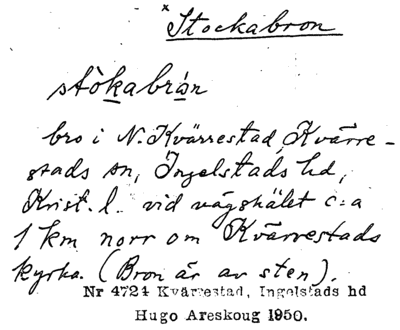 x Stockabron
stòkabrán
bro i N. Kvärrestad, Kvärre-
stads sn, Ingelstads hd,
Krist. l. vid vägskälet c:a
1 km norr om Kvärrestads
kyrka. (Bron är av sten).
Nr 4724 Kvärrestad, Ingelstads hd
Hugo Areskoug 1950.